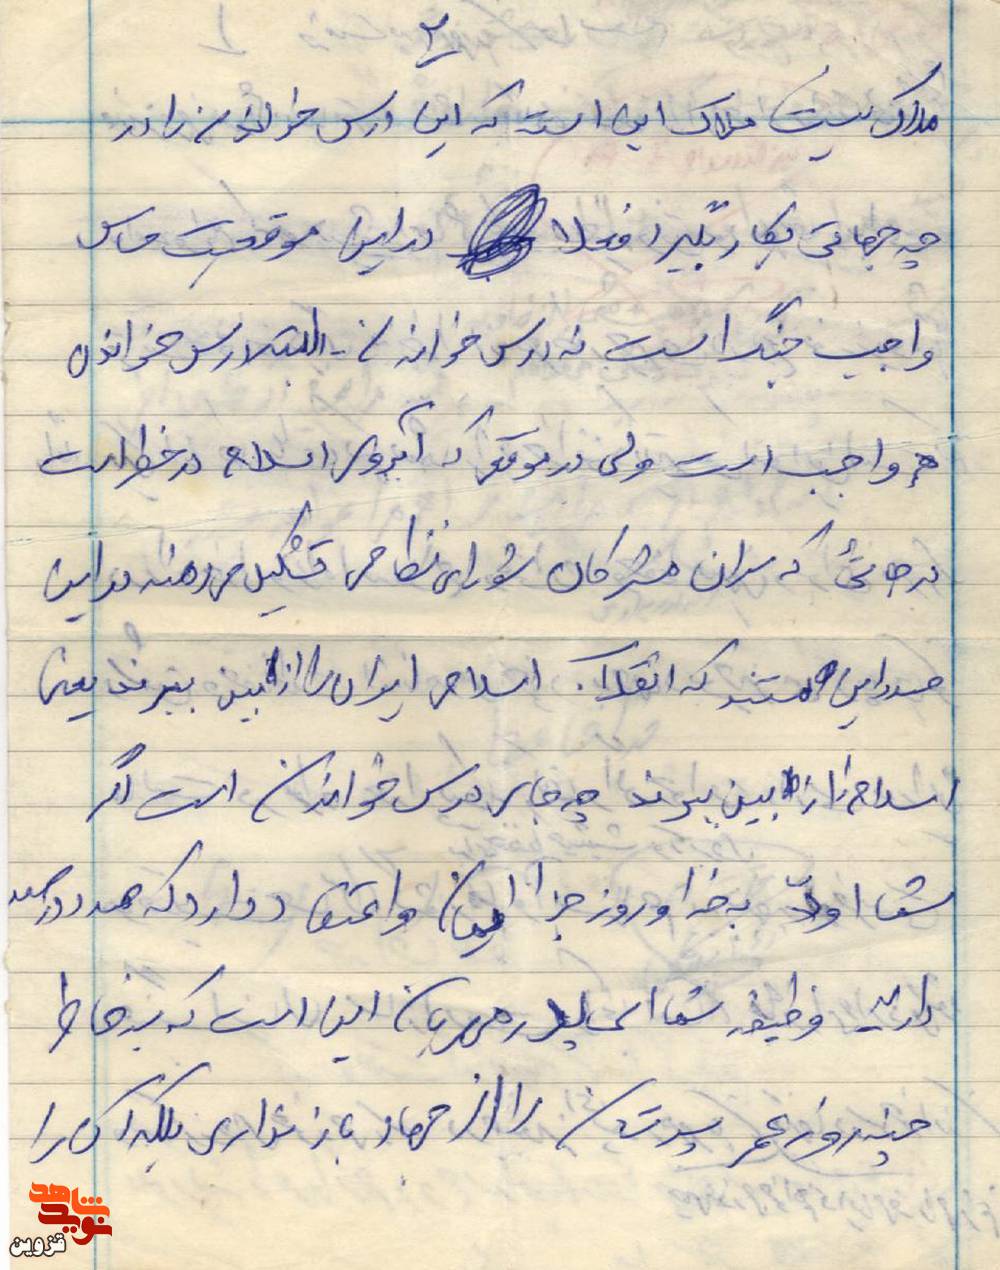 ۲
ملاک نیست ملاک این است که این درس خواندن را در
چه جهاتی بکار بگیرد فعلا در این موقعیت حساس
واجب جنگ است نه درس خواندن - البته درس خواندن
هم واجب است ولی در موقعی که آبروی اسلام در خطر است
در جائی که سران مشرکان شورای نظامی تشکیل می دهند در این
صدد این هستند که انقلاب اسلامی ایران را از بین ببرند یعنی
اسلام را از بین ببرند چه جای درس خواندن است اگر
شما اولا به خدا و روز جزا ایمان و اعتقاد دارد که صد در صد
دارید وظیفه شما ای پدر مهربان این است که به خاطر
چند روز عمر پسرتان را از جهاد باز نداری بلکه آن را
نوید شاهد
قزوین